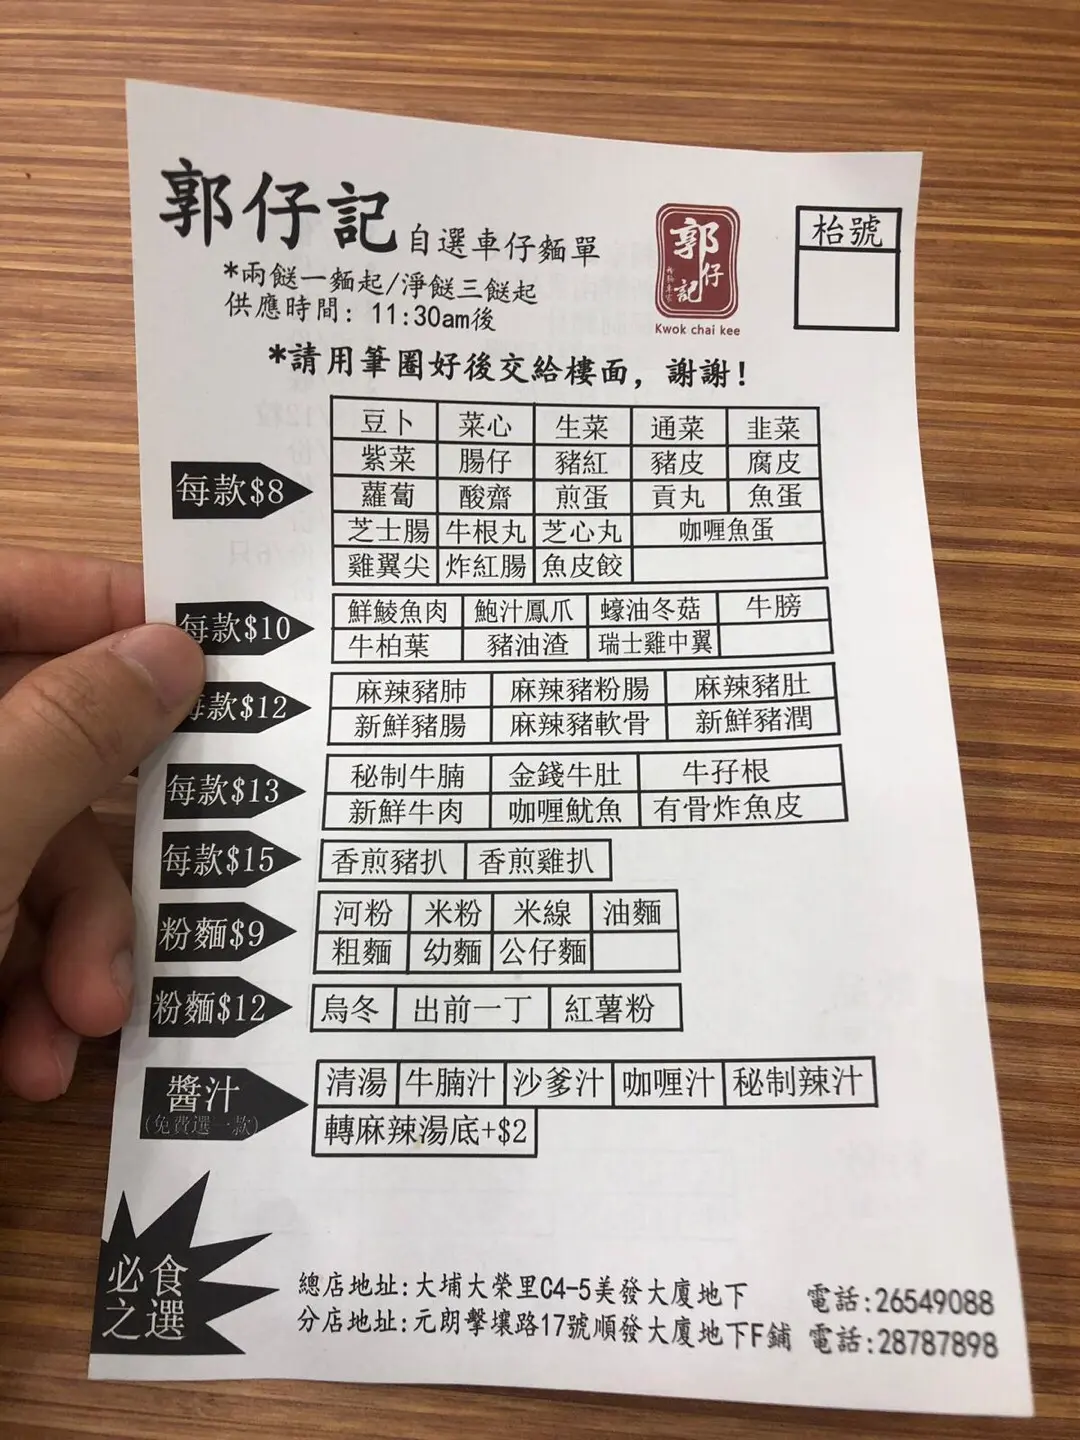 郭仔記 自選車仔麵單
*兩餸一麵起/淨餸三餸起
供應時間: 11:30am後
郭仔記
Kwok chai kee
枱號
*請用筆圈好後交給樓面，謝謝!
每款$8
豆卜 菜心 生菜 通菜 韭菜
紫菜 腸仔 豬紅 豬皮 腐皮
蘿蔔 酸齋 煎蛋 貢丸 魚蛋
芝士腸 牛根丸 芝心丸 咖喱魚蛋
雞翼尖 炸紅腸 魚皮餃
每款$10
鮮鯪魚肉 鮑汁鳳爪 蠔油冬菇 牛膀
牛柏葉 豬油渣 瑞士雞中翼
每款$12
麻辣豬肺 麻辣豬粉腸 麻辣豬肚
新鮮豬腸 麻辣豬軟骨 新鮮豬潤
每款$13
秘制牛腩 金錢牛肚 牛孖根
新鮮牛肉 咖喱魷魚 有骨炸魚皮
每款$15
香煎豬扒 香煎雞扒
粉麵$9
河粉 米粉 米線 油麵
粗麵 幼麵 公仔麵
粉麵$12
烏冬 出前一丁 紅薯粉
醬汁
(免費選一款)
清湯 牛腩汁 沙爹汁 咖喱汁 秘制辣汁
轉麻辣湯底+$2
必食
之選
總店地址:大埔大榮里C4-5美發大廈地下 電話:26549088
分店地址:元朗擊壤路17號順發大廈地下F鋪 電話:28787898